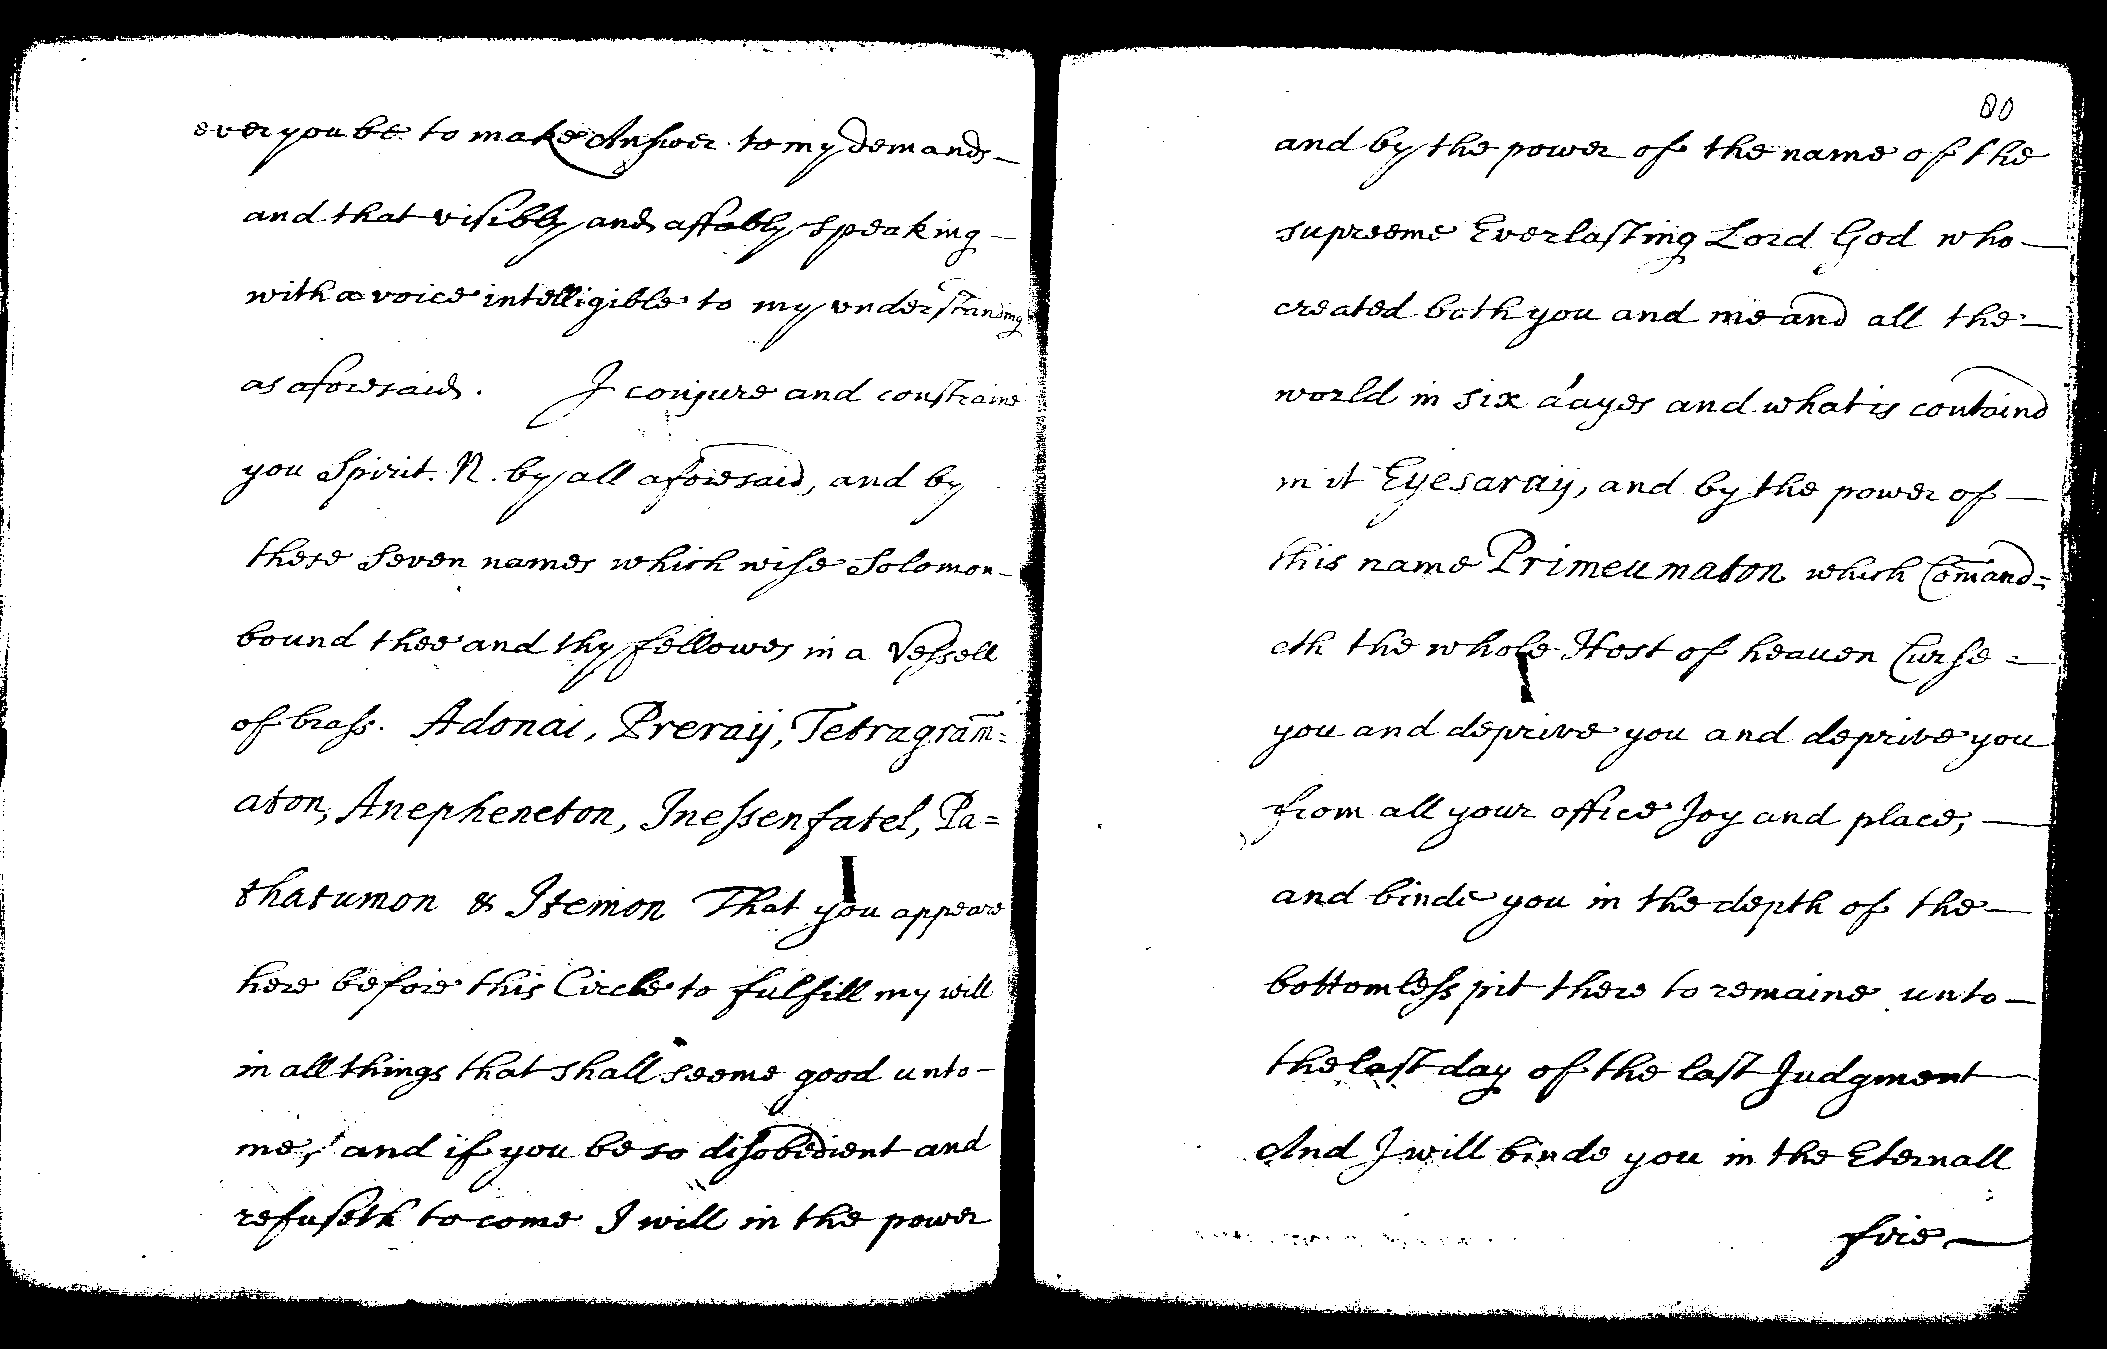 ever you be to make Answer to my demands —
and that visibly and affably speaking —
with a voice intelligible to my understanding
as aforesaid. I conjure and constraine
you Spirit. N. by all aforesaid, and by
these seven names which wise Solomon —
bound thee and thy fellowes in a Vessell
of brass. Adonai, Preraij, Tetragram̄=
aton, Anepheneton, Inessenfatel, Pa=
thatumon & Itemon That you appeare
here before this Circle to fulfill my will
in all things that shall seeme good unto —
me, and if you be so disobedient and
refuseth to come I will in the power
80
and by the power of the name of the
supreeme Everlasting Lord God who —
created both you and me and all the —
world in six dayes and what is containd
in it Eyesaraij, and by the power of —
this name Primeumaton which Com̄and=
eth the whole Host of heaven Curse =
you and deprive you and deprive you
from all your office Joy and place, —
and binde you in the depth of the —
bottomless pit there to remaine unto —
the last day of the last Judgment
And I will binde you in the Eternall
fire —